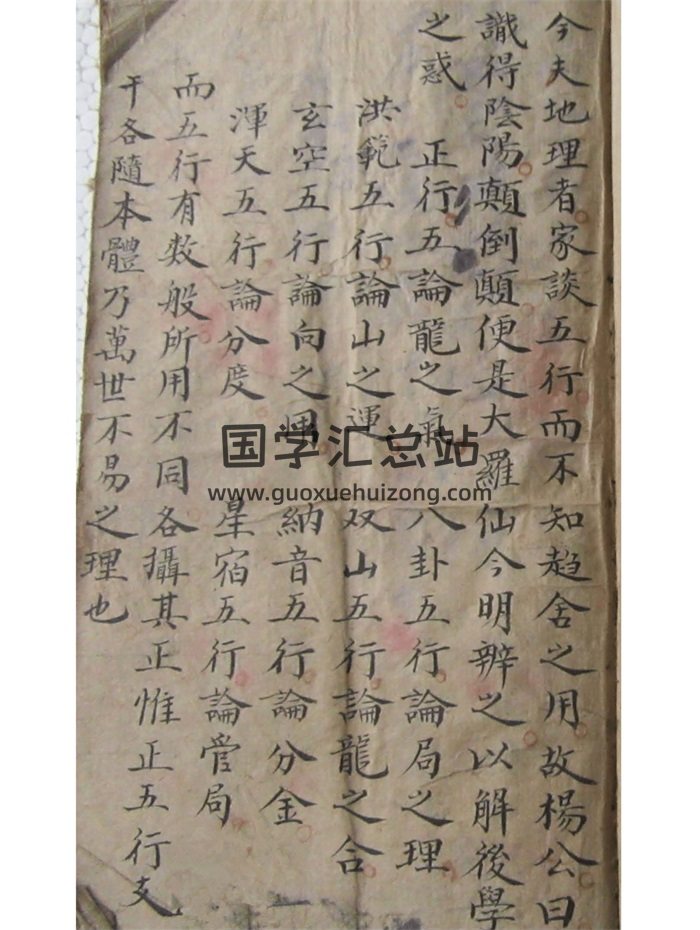 今夫地理者家談五行而不知趋舍之用故楊公曰
識得陰陽顛倒顛便是大羅仙今明辨之以解後學
之惑　正行五論龍之氣　八卦五行論局之理
洪範五行論山之運　双山五行論龍之合
玄空五行論向之用　納音五行論分金
渾天五行論分度　星宿五行論管局
而五行有数般所用不同各攝其正惟正五行支
干各隨本體乃萬世不易之理也
国学汇总站
www.guoxuehuizong.com